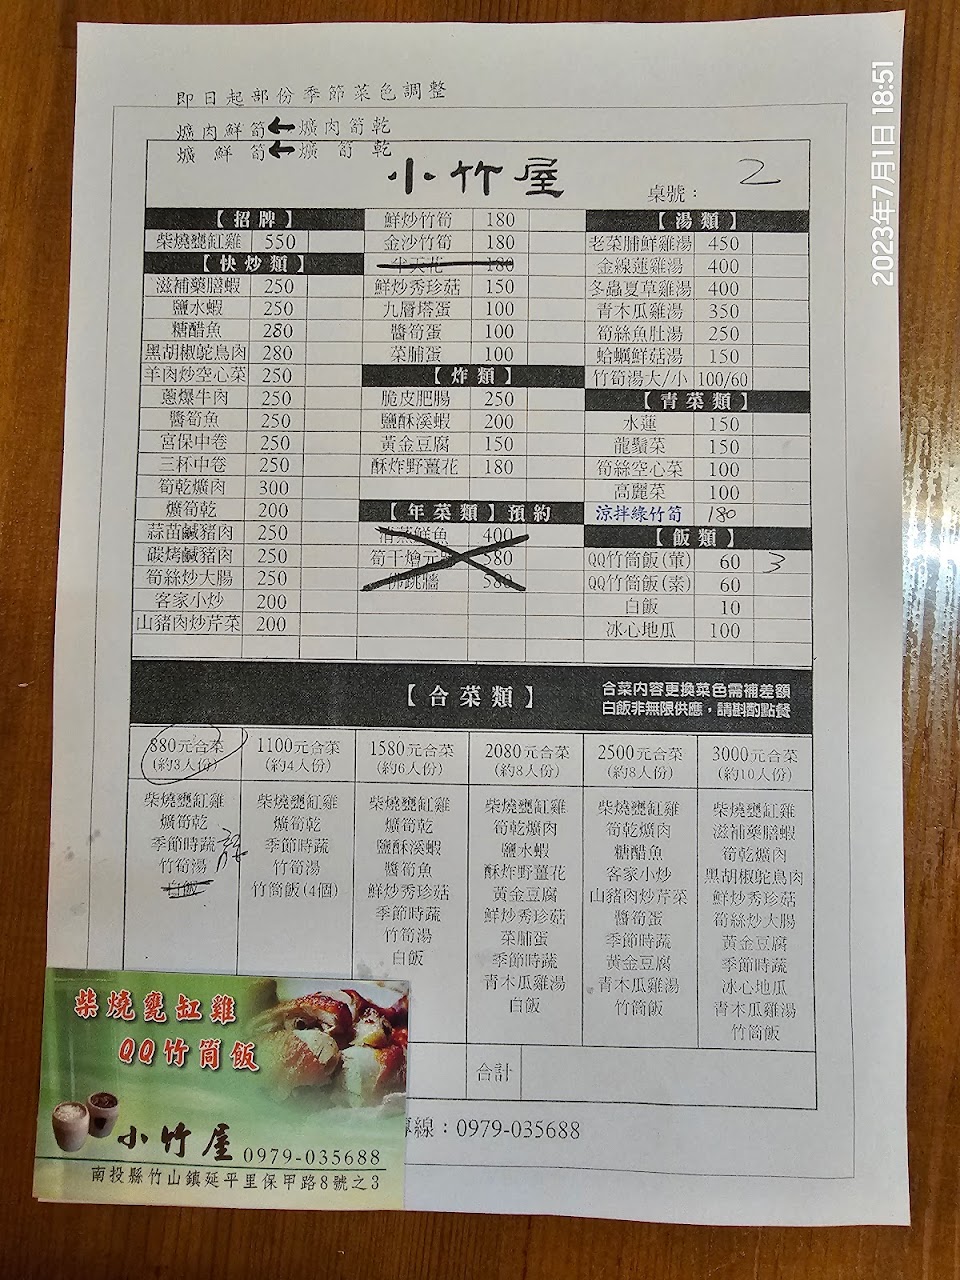 即日起部份季節菜色調整
爌肉鮮筍←爌肉筍乾
爌鮮筍←爌筍乾
小竹屋
桌號： 2
2023年7月1日 18:51
【招牌】
柴燒甕缸雞 550
【快炒類】
滋補藥膳蝦 250
鹽水蝦 250
糖醋魚 280
黑胡椒鴕鳥肉 280
羊肉炒空心菜 250
蔥爆牛肉 250
醬筍魚 250
宮保中卷 250
三杯中卷 250
筍乾爌肉 300
爌筍乾 200
蒜苗鹹豬肉 250
碳烤鹹豬肉 250
筍絲炒大腸 250
客家小炒 200
山豬肉炒芹菜 200
鮮炒竹筍 180
金沙竹筍 180
半天花 180
鮮炒秀珍菇 150
九層塔蛋 100
醬筍蛋 100
菜脯蛋 100
【炸類】
脆皮肥腸 250
鹽酥溪蝦 200
黃金豆腐 150
酥炸野薑花 180
【年菜類】預約
清蒸鮮魚 400
筍干燴元 580
佛跳牆 580
【湯類】
老菜脯鮮雞湯 450
金線蓮雞湯 400
冬蟲夏草雞湯 400
青木瓜雞湯 350
筍絲魚肚湯 250
蛤蠣鮮菇湯 150
竹筍湯大/小 100/60
【青菜類】
水蓮 150
龍鬚菜 150
筍絲空心菜 100
高麗菜 100
涼拌綠竹筍 180
【飯類】
QQ竹筒飯(葷) 60 3
QQ竹筒飯(素) 60
白飯 10
冰心地瓜 100
【合菜類】
合菜內容更換菜色需補差額
白飯非無限供應，請斟酌點餐
880元合菜
(約3人份)
柴燒甕缸雞
爌筍乾
季節時蔬
竹筍湯
白飯
1100元合菜
(約4人份)
柴燒甕缸雞
爌筍乾
季節時蔬
竹筍湯
竹筒飯(4個)
1580元合菜
(約6人份)
柴燒甕缸雞
爌筍乾
鹽酥溪蝦
醬筍魚
鮮炒秀珍菇
季節時蔬
竹筍湯
白飯
2080元合菜
(約8人份)
柴燒甕缸雞
筍乾爌肉
鹽水蝦
酥炸野薑花
黃金豆腐
鮮炒秀珍菇
菜脯蛋
季節時蔬
青木瓜雞湯
白飯
2500元合菜
(約8人份)
柴燒甕缸雞
筍乾爌肉
糖醋魚
客家小炒
山豬肉炒芹菜
醬筍蛋
季節時蔬
黃金豆腐
青木瓜雞湯
竹筒飯
3000元合菜
(約10人份)
柴燒甕缸雞
滋補藥膳蝦
筍乾爌肉
黑胡椒鴕鳥肉
鮮炒秀珍菇
筍絲炒大腸
黃金豆腐
季節時蔬
冰心地瓜
青木瓜雞湯
竹筒飯
合計
專線：0979-035688
柴燒甕缸雞
QQ竹筒飯
小竹屋 0979-035688
南投縣竹山鎮延平里保甲路8號之3